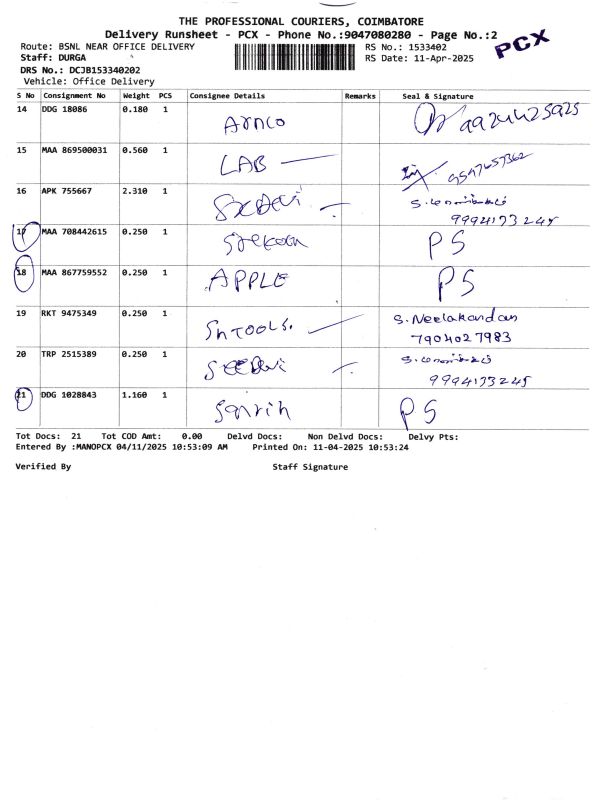 THE PROFESSIONAL COURIERS, COIMBATORE
Delivery Runsheet - PCX - Phone No.:9047080280 - Page No.:2
PCX
Route: BSNL NEAR OFFICE DELIVERY
RS No.: 1533402
Staff: DURGA
RS Date: 11-Apr-2025
DRS No.: DCJB153340202
Vehicle: Office Delivery
S No Consignment No Weight PCS Consignee Details Remarks Seal & Signature
14 DDG 18086 0.180 1
15 MAA 869500031 0.560 1 LAB
16 APK 755667 2.310 1 9994173245
17 MAA 708442615 0.250 1 PS
18 MAA 867759552 0.250 1 APPLE PS
19 RKT 9475349 0.250 1 ShTOOLS. S. Neelakandan
7904027983
20 TRP 2515389 0.250 1 9994173245
21 DDG 1028843 1.160 1 PS
Tot Docs: 21 Tot COD Amt: 0.00 Delvd Docs: Non Delvd Docs: Delvy Pts:
Entered By :MANOPCX 04/11/2025 10:53:09 AM Printed On: 11-04-2025 10:53:24
Verified By Staff Signature